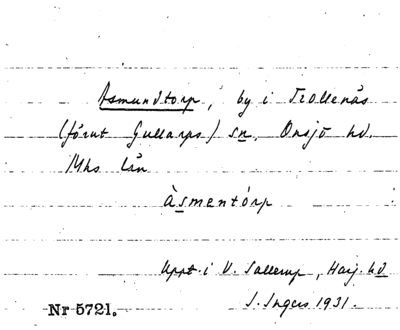 Asmundtorp, by i Trollenäs
(förut Gullarps) sn, Onsjö hd.
Mhs län
Àsmentórp
Uppt. i V. Sallerup, Harj. hd
I. Ingers 1931.
Nr 5721.